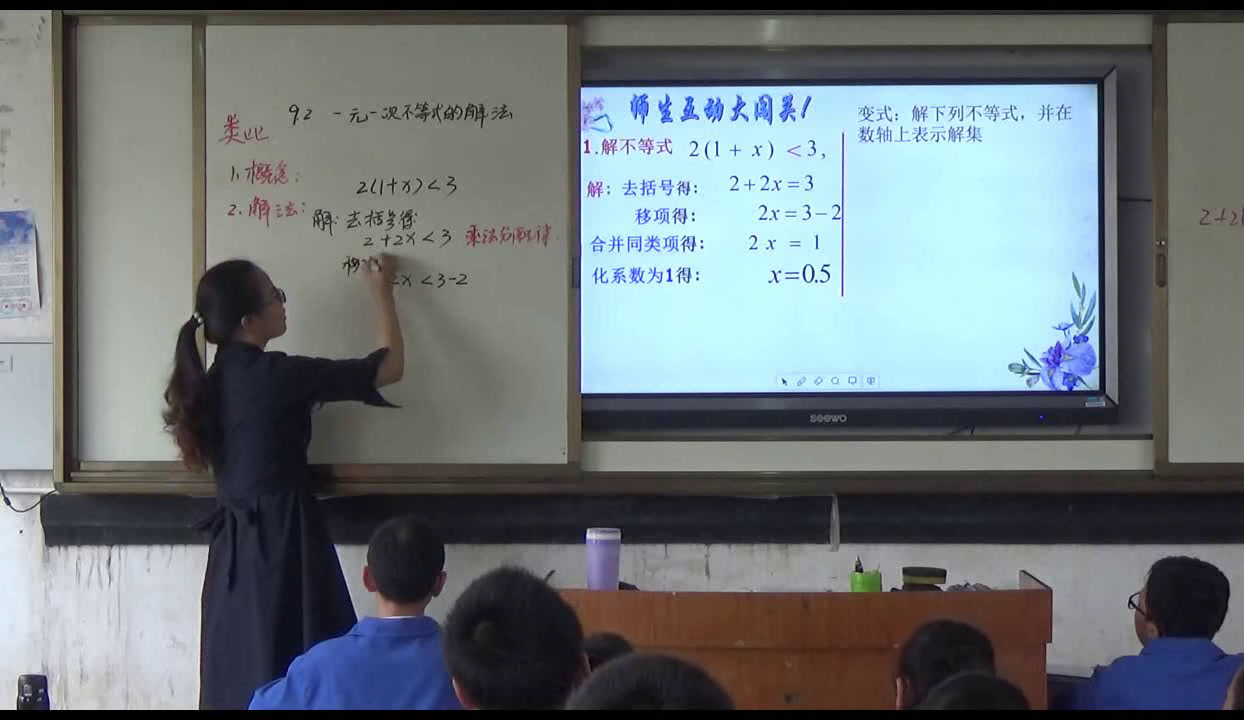 9.2 一元一次不等式的解法
类比
1. 概念:
2. 解法:
2(1+x)<3
解: 去括号得:
2+2x<3 乘法分配律.
移项
2x<3-2
师生互动大闯关!
1.解不等式 2(1 + x) < 3,
解: 去括号得: 2+2x=3
移项得: 2x=3-2
合并同类项得: 2x = 1
化系数为1得: x=0.5
变式: 解下列不等式，并在
数轴上表示解集
seewo
2+2